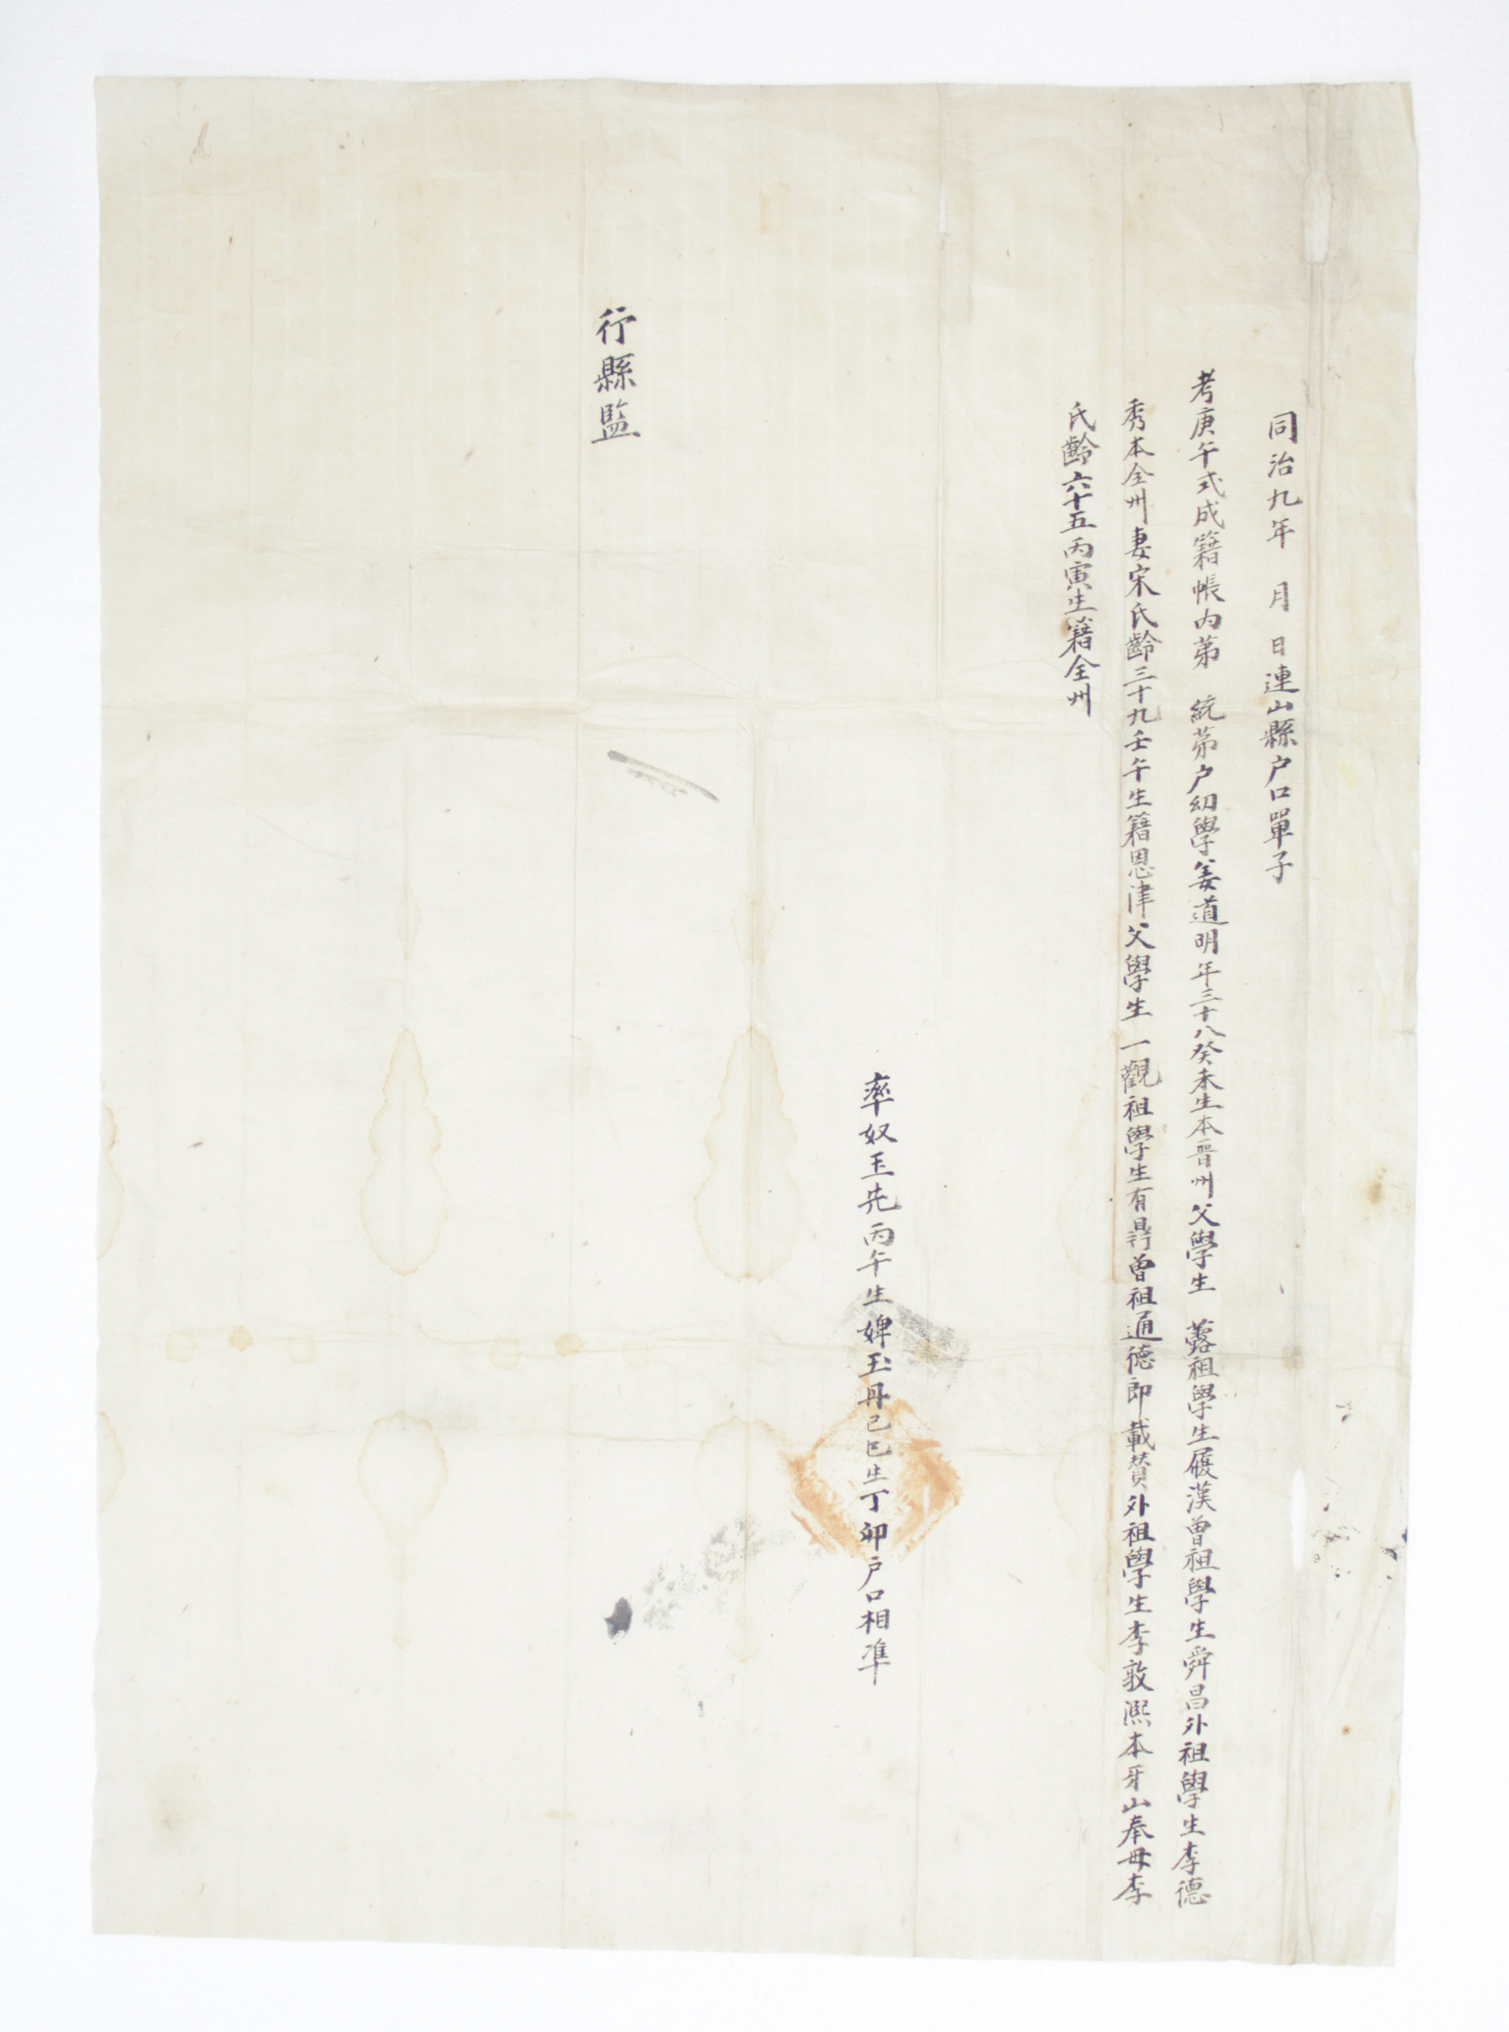 同治九年 月 日連山縣戶口單子
考庚午式成籍帳內第 統第戶幼學姜道明年三十八癸未生本晋州父學生 蕗祖學生履漢曾祖學生舜昌外祖學生李德
秀本全州妻宋氏齡三十九壬午生籍恩津父學生 一觀祖學生有曾祖通德郎載賛外祖學生李敦熈本牙山奉母李
氏齡六十五丙寅生籍全州
率奴玉先丙午生婢玉丹己巳生丁卯戶口相準
行縣監